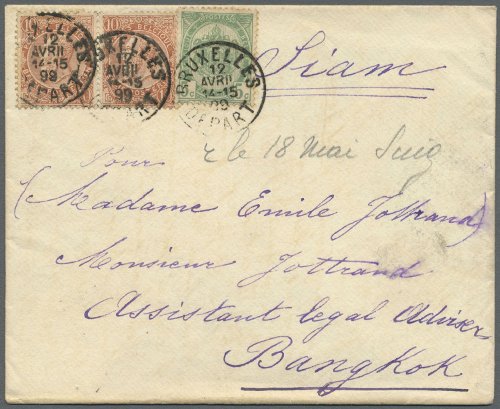 BRUXELLES
12
AVRIL
14-15
99
DEPART
10
BRUXELLES
12
AVRIL
14-15
99
DEPART
BRUXELLES
12
AVRIL
14-15
99
DEPART
Siam
le 18 Mai
Pour
(Madame Emile Jottrand)
Monsieur Jottrand
Assistant legal Adviser
Bangkok